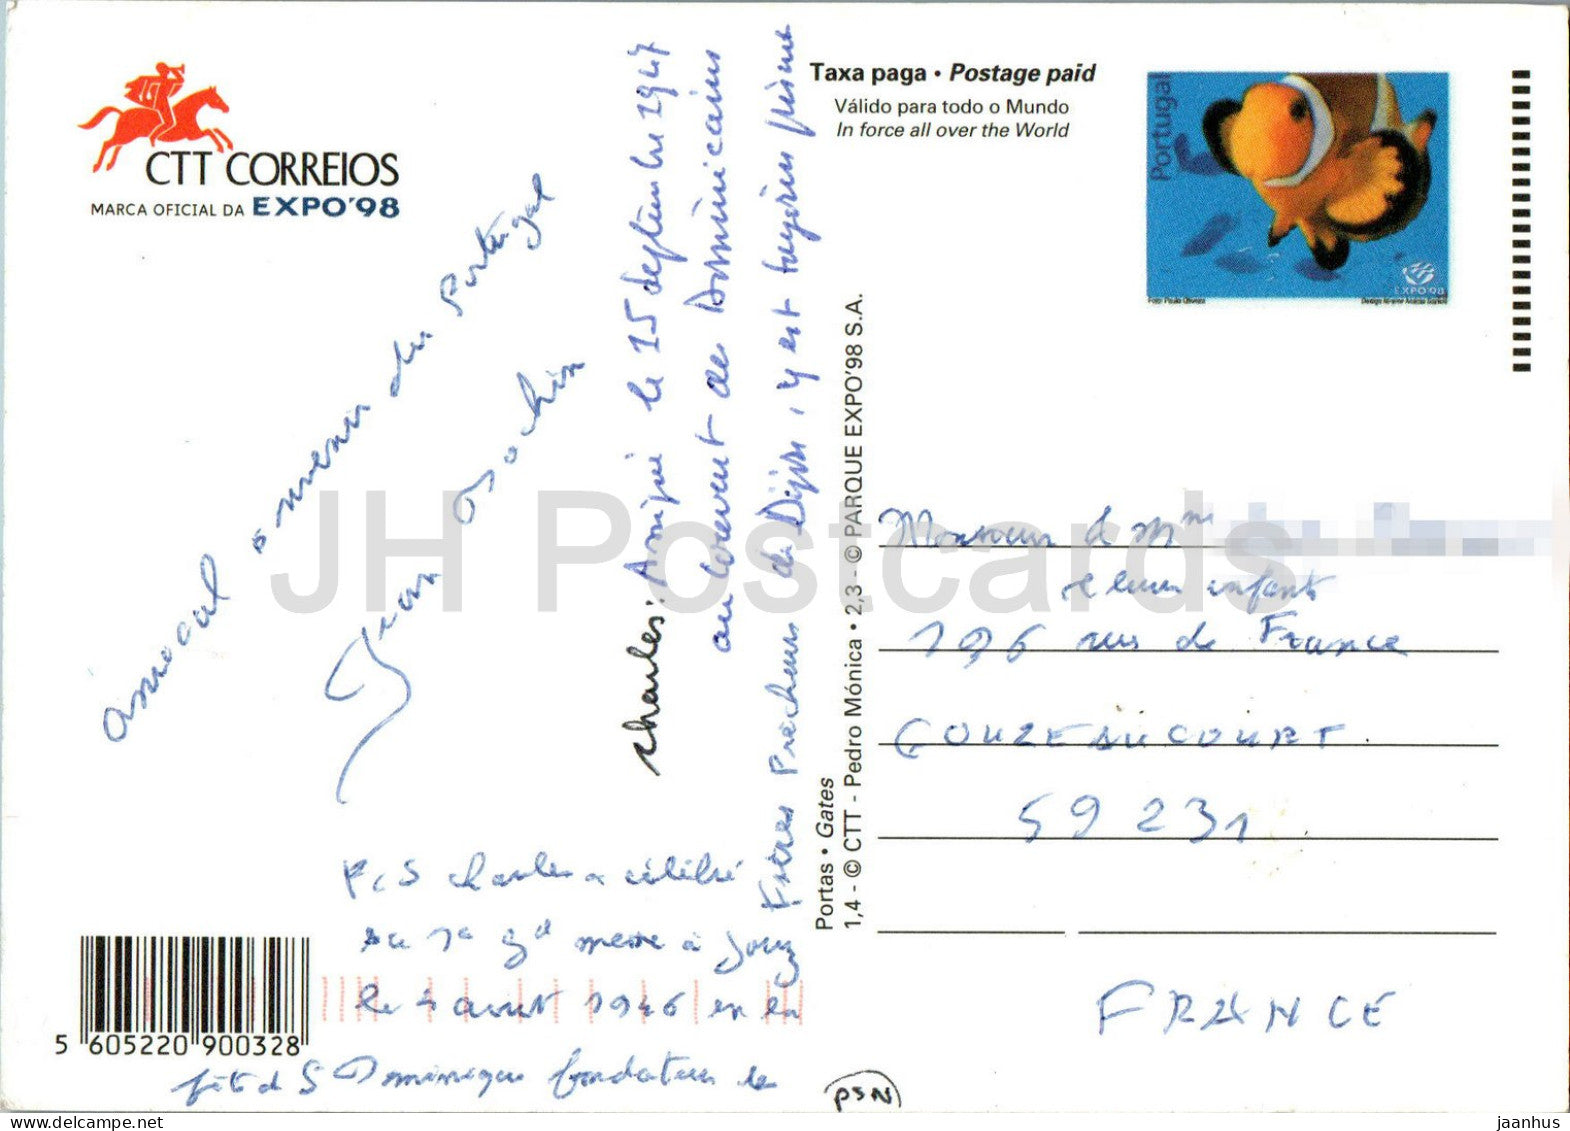 CTT CORREIOS
MARCA OFICIAL DA EXPO'98
amical souvenir du Portugal
Jean
P.S Charles a célébré
sa 1e gd messe à Jouy
le 4 août 1946 en la
fête de S Dominique fondateur de
5 605220 900328
Charles: le 15 septembre 1947
au couvent des Dominicains
Frères Prêcheurs de Dijon, y est toujours
Taxa paga • Postage paid
Válido para todo o Mundo
In force all over the World
Portugal
EXPO'98
Foto: Paulo Oliveira
Portas • Gates
1,4 - © CTT - Pedro Mónica • 2,3 - © PARQUE EXPO'98 S.A.
Monsieur & Mme
& leurs enfants
196 rue de France
GOUZEAUCOURT
59231
FRANCE
PSN
JH Postcards
jaanhus